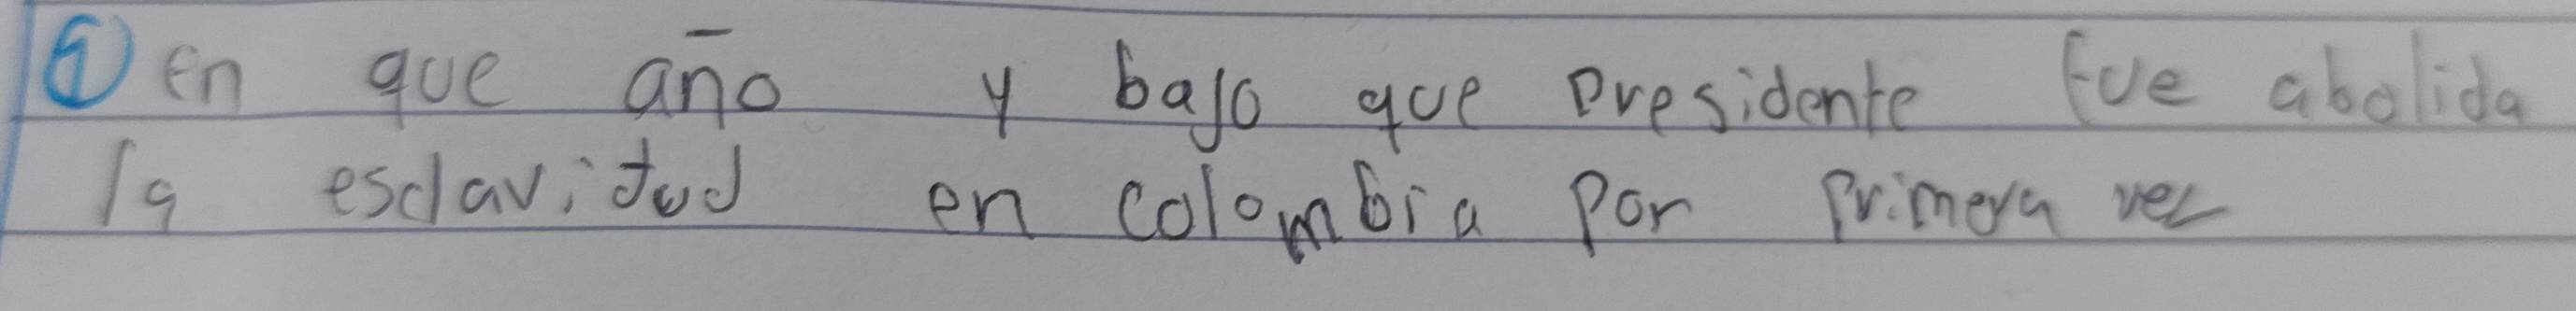 ① En que año y bajo que presidente fue abolida
la esclavitud en colombia por primera vez